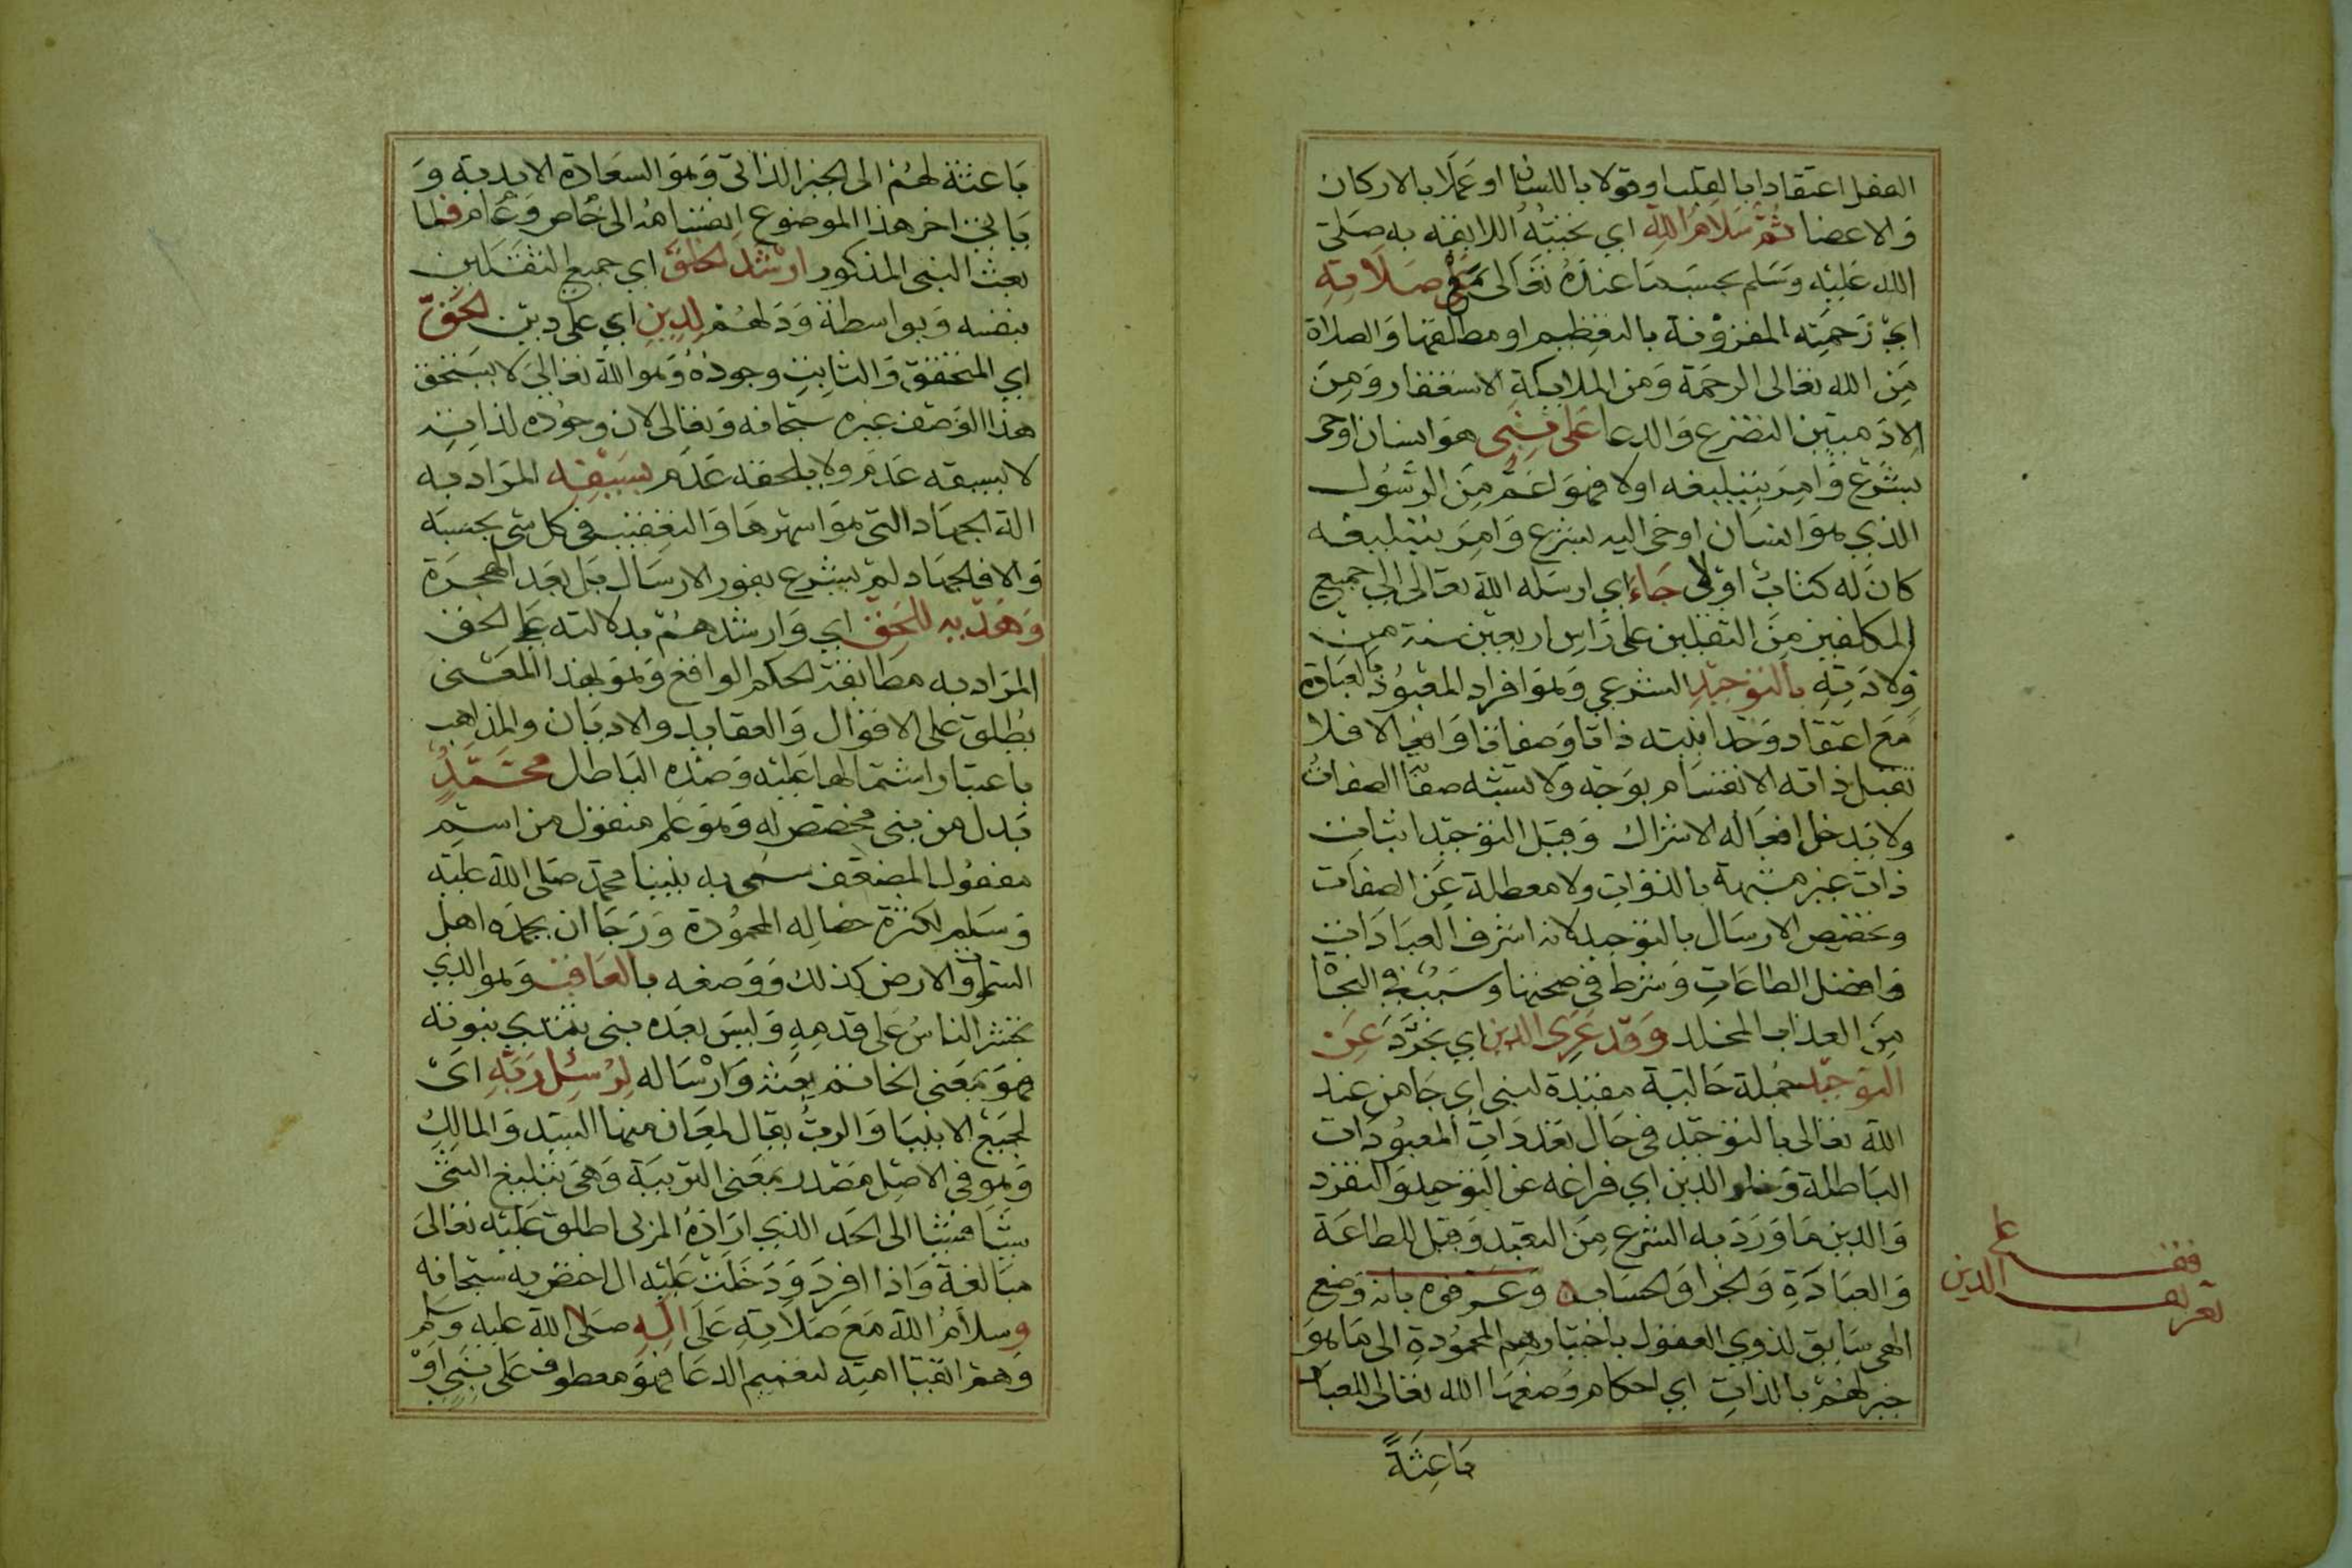 الفعل اعتقادا بالقلب او قولا باللسان او عملا بالاركان
والاعضا ثم سلام الله اي تحيته اللايقه به صلى
الله عليه وسلم بحسب ما عنده تعالى مع صلاته
اي رحمته المقرونة بالتعظيم او مطلقها والصلاة
من الله تعالى الرحمة ومن الملايكة الاستغفار ومن
الادميين التضرع والدعا على نبي هو انسان اوحى
بشرع وامر بتبليغه اولا فهو اعم من الرسول
الذي هو انسان اوحى اليه بشرع وامر بتبليغه
كان له كتاب اولا جاء اي ارسله الله تعالى الى جميع
المكلفين من الثقلين على راس اربعين سنة من
ولادته بالتوحيد الشرعي وهو افراد المعبود بالعبادة
مع اعتقاد وحدانيته ذاتا وصفاتا وافعالا فلا
تقبل ذاته الانقسام بوجه ولا تشبه صفاته الصفات
ولا يدخل افعاله الاشراك وقيل التوحيد اثبات
ذات غير مشبهة بالذوات ولا معطلة عن الصفات
وتخصيص الارسال بالتوحيد لانه اشرف العبادات
وافضل الطاعات وشرط في صحتها وسبب في النجاة
من العذاب المخلد وقد عرى الدين اي تجرد عن
التوحيد جملة حالية مقيدة لنبي اي جا من عند
الله تعالى بالتوحيد في حال تعدد ات المعبودات
الباطلة وخلو الدين اي فراغه عن التوحيد والتفرد
والدين ما ورد به الشرع من التعبد وقيل للطاعة
والعبادة والجزا والحساب وعرفوه بانه وضع
الهي سايق لذوي العقول باختيارهم المحمودة الى ما هو
خير لهم بالذات اي احكام وضعها الله تعالى للعباد
باعثة
قف
على
تعريف الدين
باعثة لهم الى الخير الذاتي وهو السعادة الابدية و
ياتي اخر هذا الموضوع انقسامه الى خاص وعام فلما
بعث النبي المذكور ارشد الخلق اي جميع الثقلين
بنفسه وبواسطة ودلهم لدين اي على دين الحق
اي المتحقق والثابت وجوده وهو الله تعالى لا يستحق
هذا الوصف غيره سبحانه وتعالى لان وجوده لذاته
لا يسبقه عدم ولا يلحقه عدم بسيفه المراد به
الة الجهاد التي هو اشهرها والتعقيب في كل شي بحسبه
والا فالجهاد لم يشرع بفور الارسال بل بعد الهجرة
وهديه للحق اي وارشدهم بدلالته على الحق
المراد به مطابقة الحكم الواقع وهو بهذا المعنى
يطلق على الاقوال والعقايد والاديان والمذاهب
باعتبار اشتمالها عليه وضده الباطل محمد
بدل من نبي مخصص له وهو علم منقول من اسم
مفعول المضعف سمي به نبينا محمد صلى الله عليه
وسلم لكثرة خصاله المحمودة ورجا ان يحمده اهل
السموات والارض كذلك ووصفه بالعاقب وهو الذي
تحشر الناس على قدمه وليس بعده نبي تبتدي نبوته
فهو بمعنى الخاتم بعثه وارساله لرسل ربه اي
لجميع الانبيا والرب يقال لمعان منها السيد والمالك
وهو في الاصل مصدر بمعنى التربية وهي تبليغ الشي
شيا فشيا الى الحد الذي اراده المربى اطلق عليه تعالى
مبالغة واذا افرد ودخلت عليه ال اختص به سبحانه
وسلام الله مع صلاته على اله صلى الله عليه وسلم
وهم اتقيا امته لتعميم الدعا فهو معطوف على نبي او